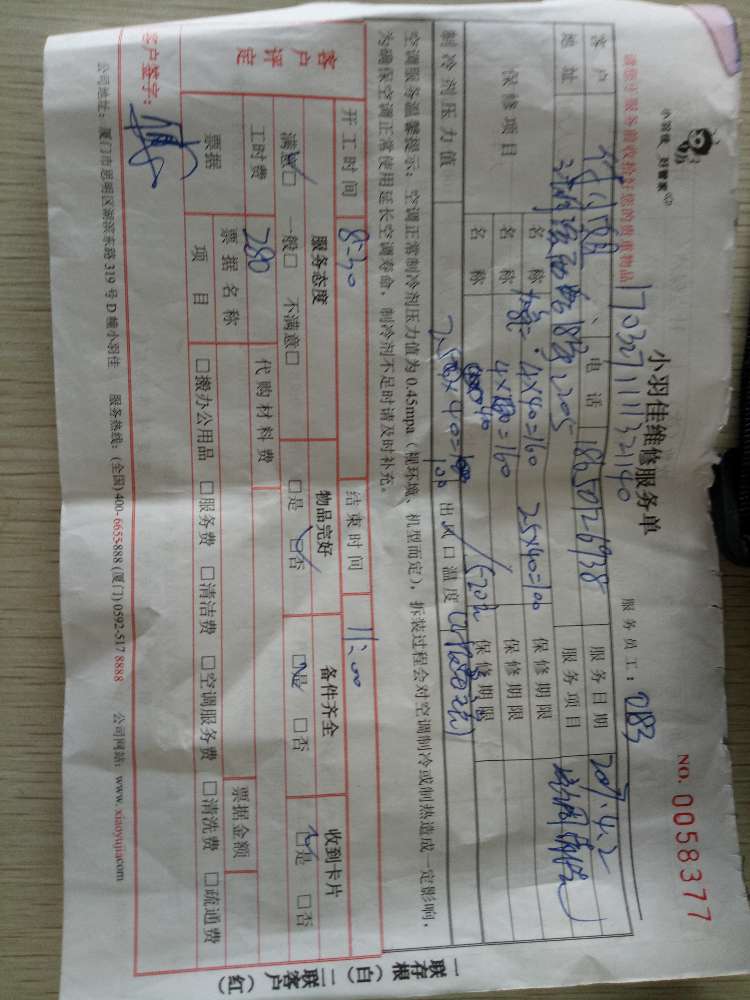 小羽佳 好管家
小羽佳维修服务单
NO. 0058377
请您于服务前收拾好您的贵重物品
17032711132140
服务员工：083
客户
电话 18650726938
服务日期 2017.4.2
地址
服务项目
保修项目
名称 加氟= 4×40=160 25×40=100
保修期限
名称 4×40=160
保修期限
名称
保修期限
制冷剂压力值
出风口温度
空调服务温馨提示：空调正常制冷剂压力值为0.45mpa（视环境、机型而定），拆装过程会对空调制冷或制热造成一定影响，
为确保空调正常使用延长空调寿命，制冷剂不足时请及时补充。
开工时间 8:30
结束时间 11:00
客户评定
服务态度
物品完好
备件齐全
收到卡片
满意□ 一般□ 不满意□
□是 □否
□是 □否
□是 □否
工时费 280
代购材料费
票据
票据名称
票据金额
项目
□搬办公用品 □服务费 □清洁费 □空调服务费 □清洗费 □疏通费
客户签字：
公司地址：厦门市思明区湖滨东路319号D幢小羽佳 服务热线：(全国)400-6655-888 (厦门)0592-517 8888 公司网站：www.xiaoyujia.com
一联存根（白）二联客户（红）